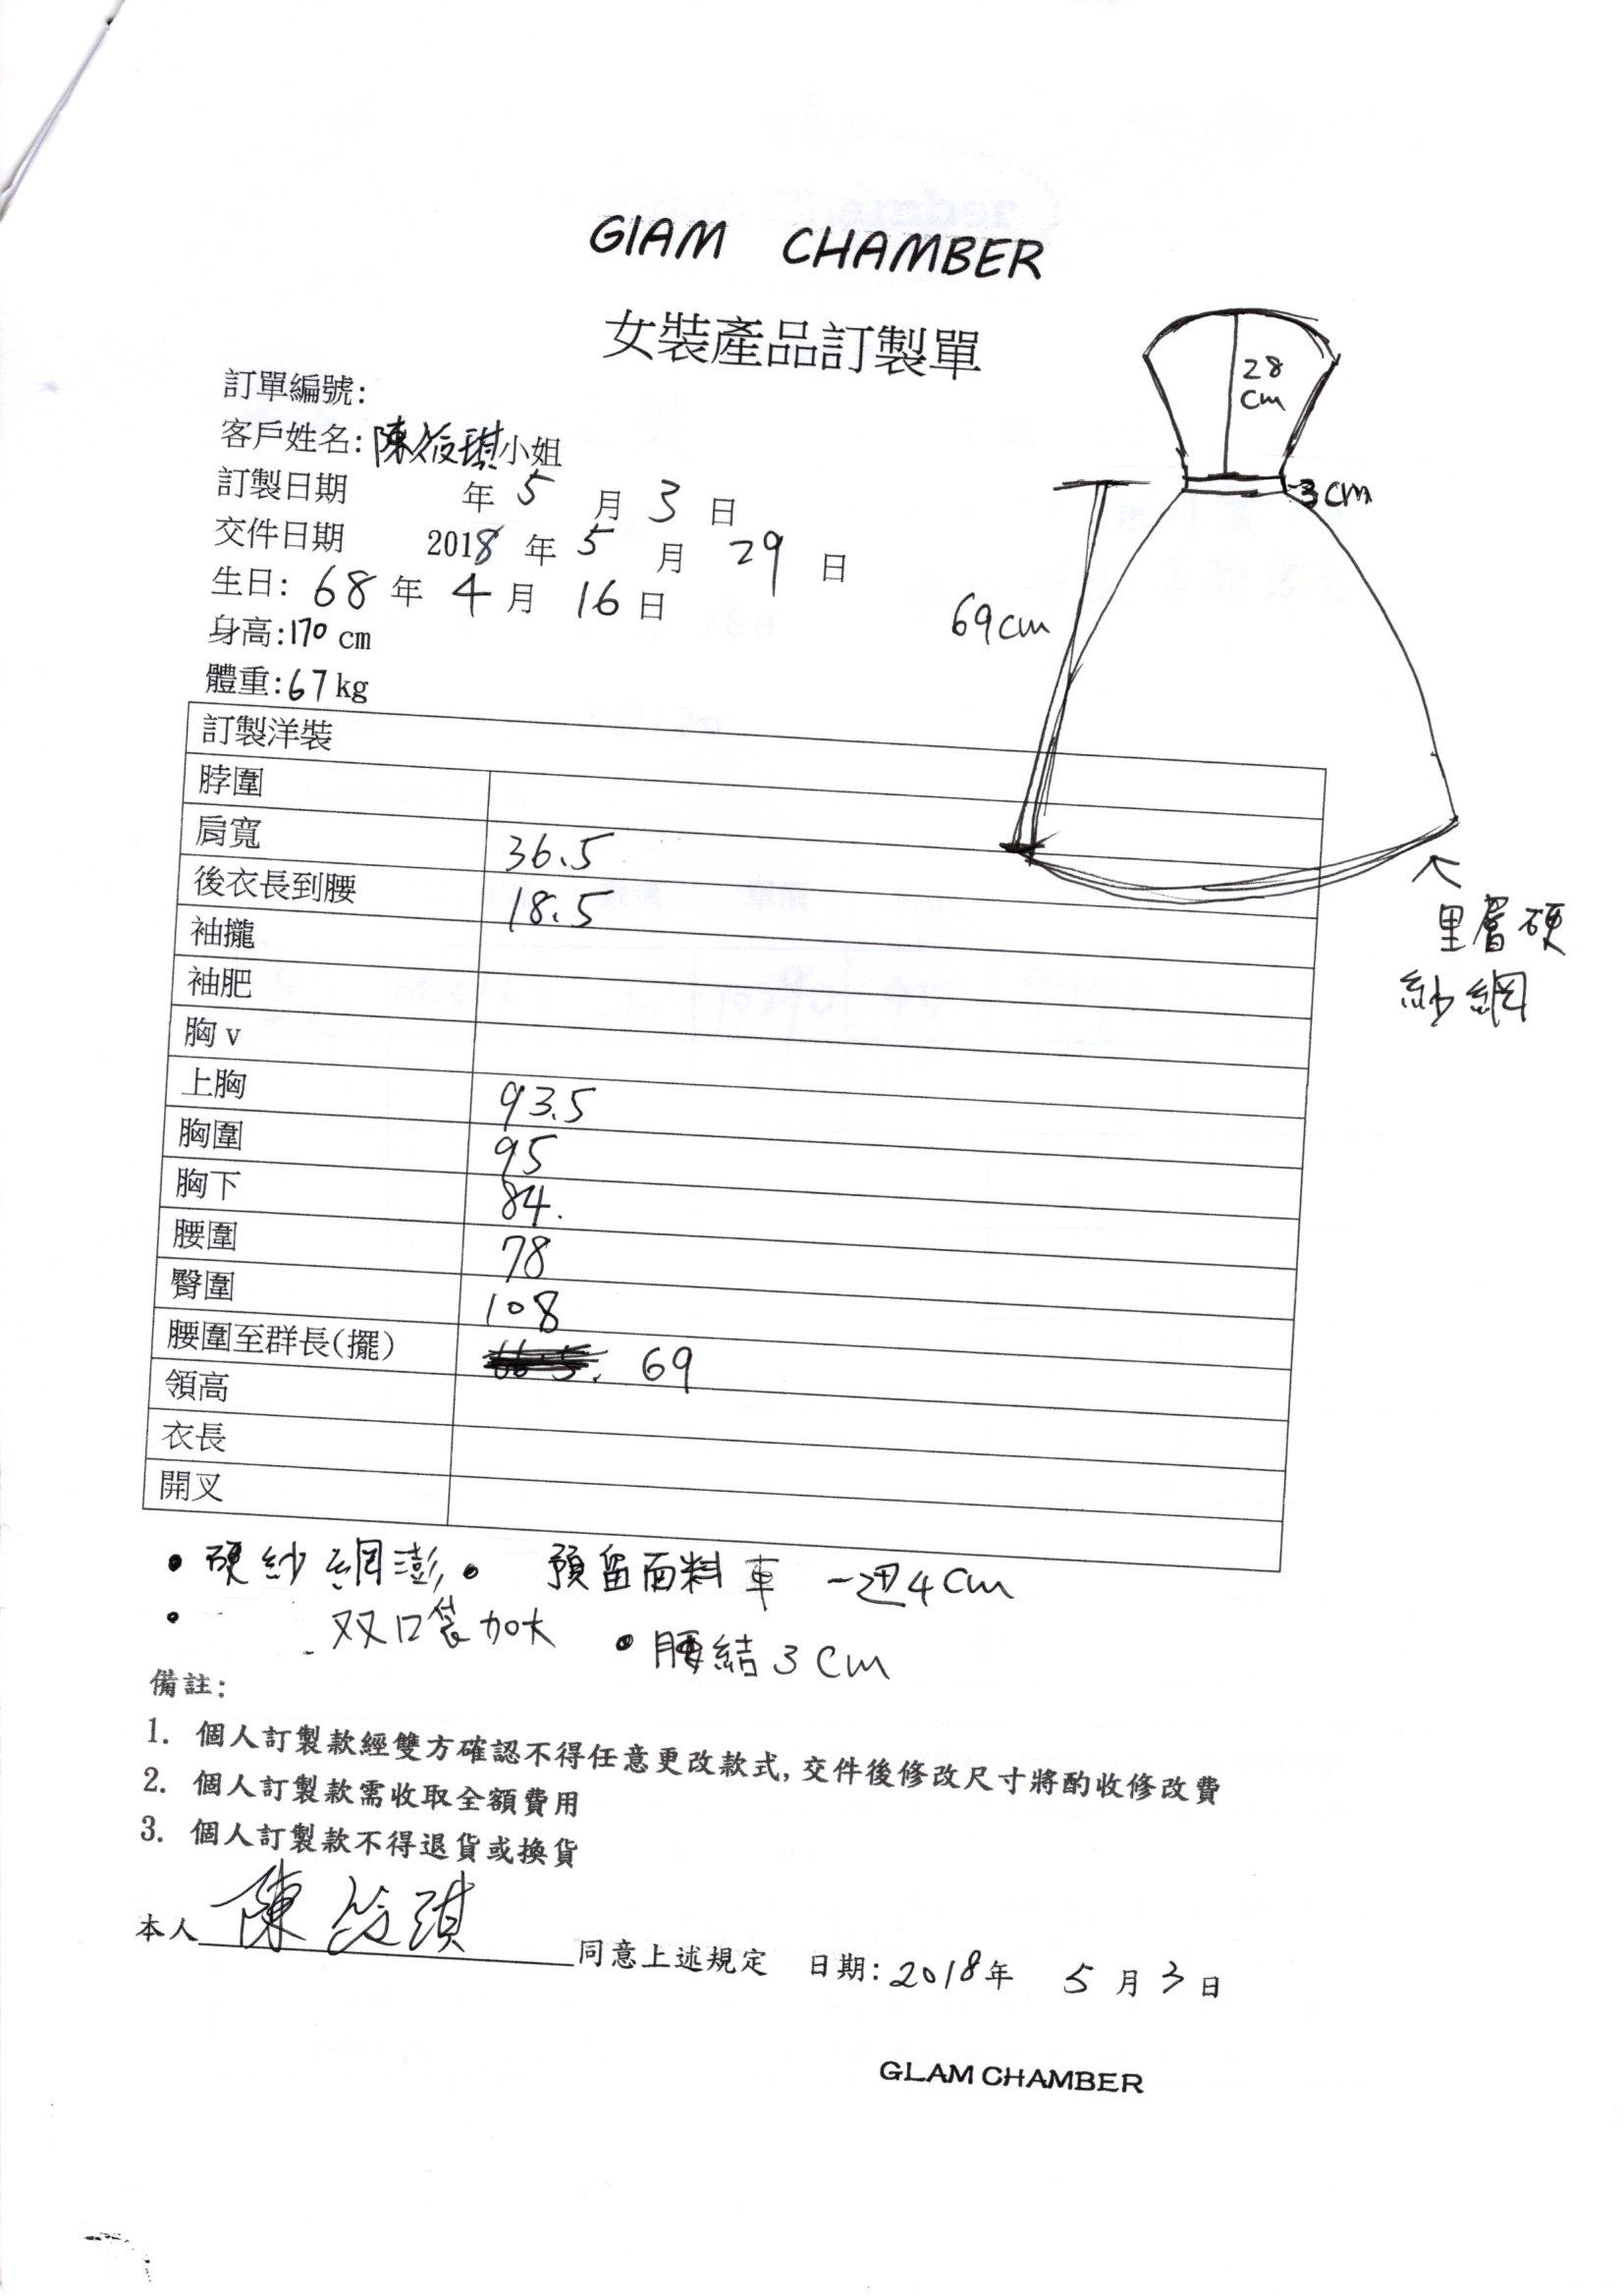 GIAM CHAMBER
女裝產品訂製單
訂單編號:
客戶姓名:陳筱琪小姐
訂製日期 年 5 月 3 日
交件日期 2018 年 5 月 29 日
生日: 68 年 4 月 16 日
身高:170 cm
體重:67 kg
28
cm
3cm
69cm
里層硬
紗網
訂製洋裝
脖圍
肩寬 36.5
後衣長到腰 18.5
袖攏
袖肥
胸 v
上胸 93.5
胸圍 95
胸下 84.
腰圍 78
臀圍 108
腰圍至群長(擺) 66.5. 69
領高
衣長
開叉
• 硬紗網澎 • 預留面料車 一边4cm
• 双口袋加大 • 腰結3cm
備註:
1. 個人訂製款經雙方確認不得任意更改款式,交件後修改尺寸將酌收修改費
2. 個人訂製款需收取全額費用
3. 個人訂製款不得退貨或換貨
本人 陳筱琪 同意上述規定 日期: 2018年 5 月 3 日
GLAM CHAMBER